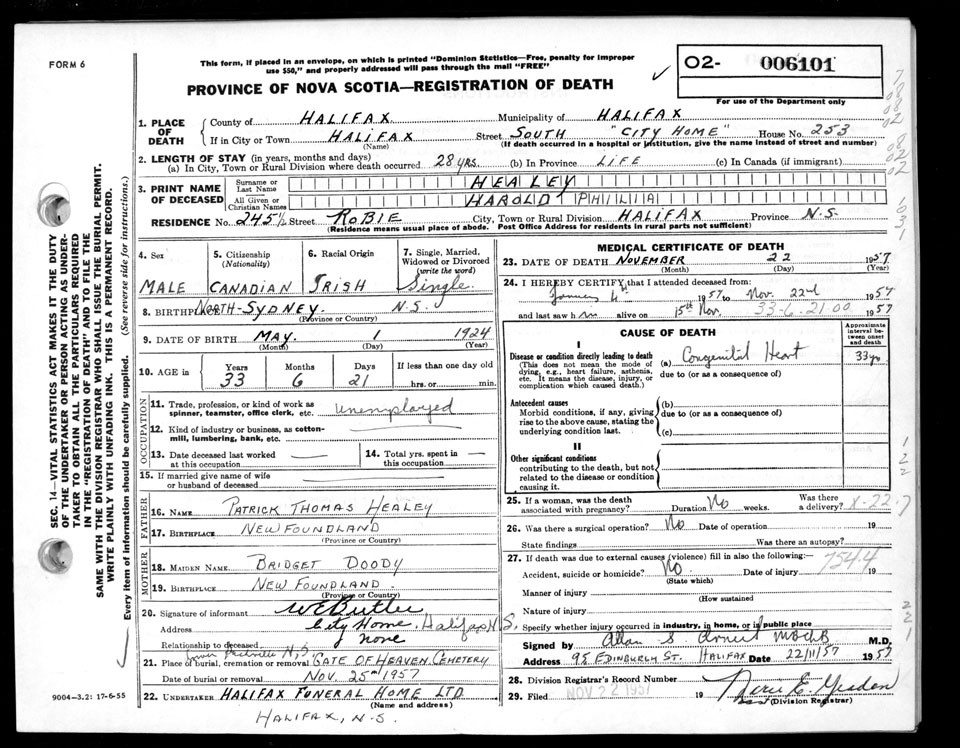 FORM 6
This form, if placed in an envelope, on which is printed "Dominion Statistics—Free, penalty for improper
use $50," and properly addressed will pass through the mail "FREE"
PROVINCE OF NOVA SCOTIA—REGISTRATION OF DEATH
✓
O2- 006101
For use of the Department only
1. PLACE OF DEATH
County of HALIFAX Municipality of HALIFAX
If in City or Town HALIFAX Street SOUTH "CITY HOME" House No. 253
(Name) (If death occurred in a hospital or institution, give the name instead of street and number)
2. LENGTH OF STAY (in years, months and days)
(a) In City, Town or Rural Division where death occurred 28 yrs. (b) In Province LIFE (c) In Canada (if immigrant)
3. PRINT NAME OF DECEASED
Surname or Last Name HEALEY
All Given or Christian Names HAROLD PHILIA
RESIDENCE No. 245½ Street ROBIE City, Town or Rural Division HALIFAX Province N.S.
(Residence means usual place of abode. Post Office Address for residents in rural parts not sufficient)
4. Sex MALE
5. Citizenship (Nationality) CANADIAN
6. Racial Origin IRISH
7. Single, Married, Widowed or Divorced (write the word) Single.
8. BIRTHPLACE NORTH-SYDNEY. N.S.
(Province or Country)
9. DATE OF BIRTH MAY. 1 1924
(Month) (Day) (Year)
10. AGE in Years 33 Months 6 Days 21 If less than one day old hrs. or min.
OCCUPATION
11. Trade, profession, or kind of work as spinner, teamster, office clerk, etc. Unemployed
12. Kind of industry or business, as cotton-mill, lumbering, bank, etc.
13. Date deceased last worked at this occupation
14. Total yrs. spent in this occupation
15. If married give name of wife or husband of deceased
FATHER
16. NAME PATRICK THOMAS HEALEY
17. BIRTHPLACE NEWFOUNDLAND
(Province or Country)
MOTHER
18. MAIDEN NAME BRIDGET DOODY
19. BIRTHPLACE NEW FOUNDLAND.
(Province or Country)
20. Signature of informant W E Butler
Address City Home, Halifax N.S.
Relationship to deceased none
Lower Sackville N.S.
21. Place of burial, cremation or removal GATE OF HEAVEN CEMETERY
Date of burial or removal NOV. 25th 1957
22. UNDERTAKER HALIFAX FUNERAL HOME LTD.
(Name and address)
HALIFAX, N.S.
MEDICAL CERTIFICATE OF DEATH
23. DATE OF DEATH NOVEMBER 22 1957
(Month) (Day) (Year)
24. I HEREBY CERTIFY that I attended deceased from:
January 4th 1957 to Nov. 22nd 1957
and last saw him alive on 15th Nov. 1957
33-6-21 00
CAUSE OF DEATH
Approximate interval between onset and death
I
Disease or condition directly leading to death (a) Congenital Heart 33 yrs
(This does not mean the mode of dying, e.g., heart failure, asthenia, etc. It means the disease, injury, or complication which caused death.)
due to (or as a consequence of)
Antecedent causes
Morbid conditions, if any, giving rise to the above cause, stating the underlying condition last.
(b)
due to (or as a consequence of)
(c)
II
Other significant conditions
contributing to the death, but not related to the disease or condition causing it.
25. If a woman, was the death associated with pregnancy? Duration No weeks. Was there a delivery? X-22-7
26. Was there a surgical operation? No Date of operation 19
State findings Was there an autopsy?
27. If death was due to external causes (violence) fill in also the following:—
754.4
Accident, suicide or homicide? No. Date of injury 19
(State which)
Manner of injury
(How sustained
Nature of injury
Specify whether injury occurred in industry, in home, or in public place
Signed by Allan S. M.B Ch B M.D.
Address 95 EDINBURGH ST. HALIFAX Date 22/11/57 1957
28. Division Registrar's Record Number
29. Filed NOV 22 1957 19
(Division Registrar)
SEC. 14—VITAL STATISTICS ACT MAKES IT THE DUTY
OF THE UNDERTAKER OR PERSON ACTING AS UNDER-
TAKER TO OBTAIN ALL THE PARTICULARS REQUIRED
IN THE "REGISTRATION OF DEATH" AND TO FILE THE
SAME WITH THE DIVISION REGISTRAR WHO SHALL ISSUE THE BURIAL PERMIT.
WRITE PLAINLY WITH UNFADING INK. THIS IS A PERMANENT RECORD.
Every item of information should be carefully supplied. (See reverse side for instructions.)
9004—3.2: 17-6-55